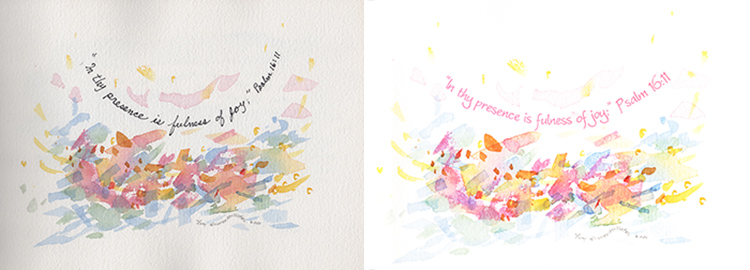 "In thy presence is fulness of joy;" Psalm 16:11
"In thy presence is fulness of joy;" Psalm 16:11